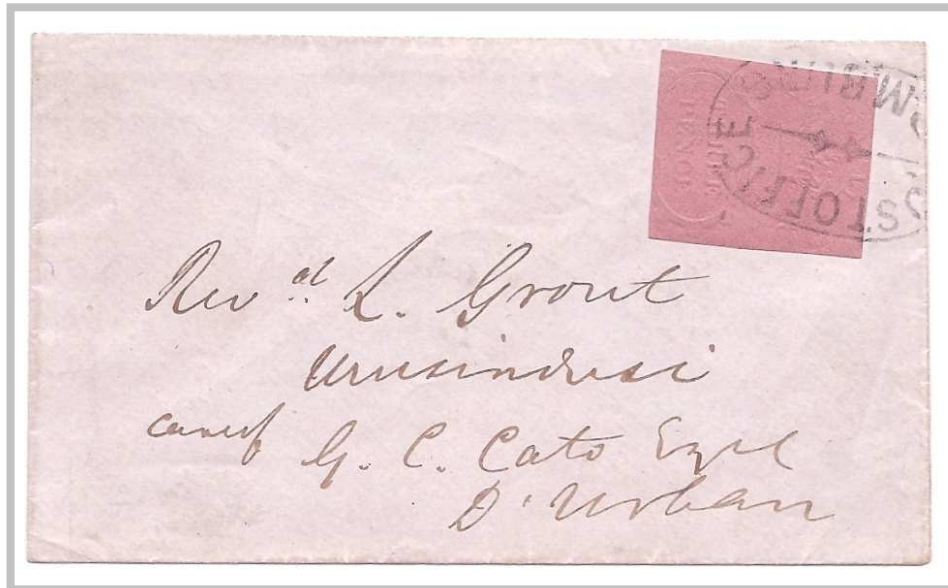 THREE PENCE
POST OFFICE
Revd L. Grout
Umsinduzi
care of
G. C. Cato Esqre
D'Urban